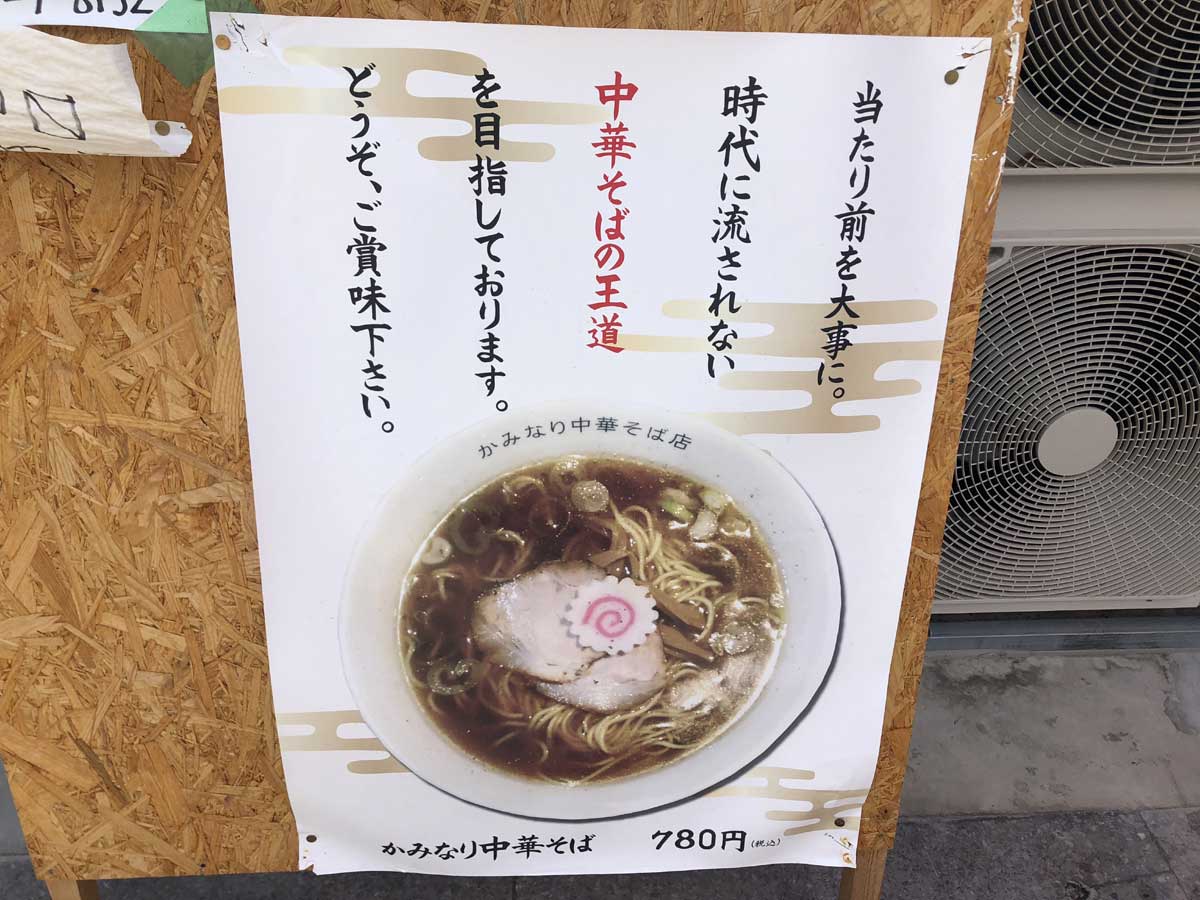 当たり前を大事に。
時代に流されない
中華そばの王道
を目指しております。
どうぞ、ご賞味下さい。
かみなり中華そば店
かみなり中華そば 780円(税込)